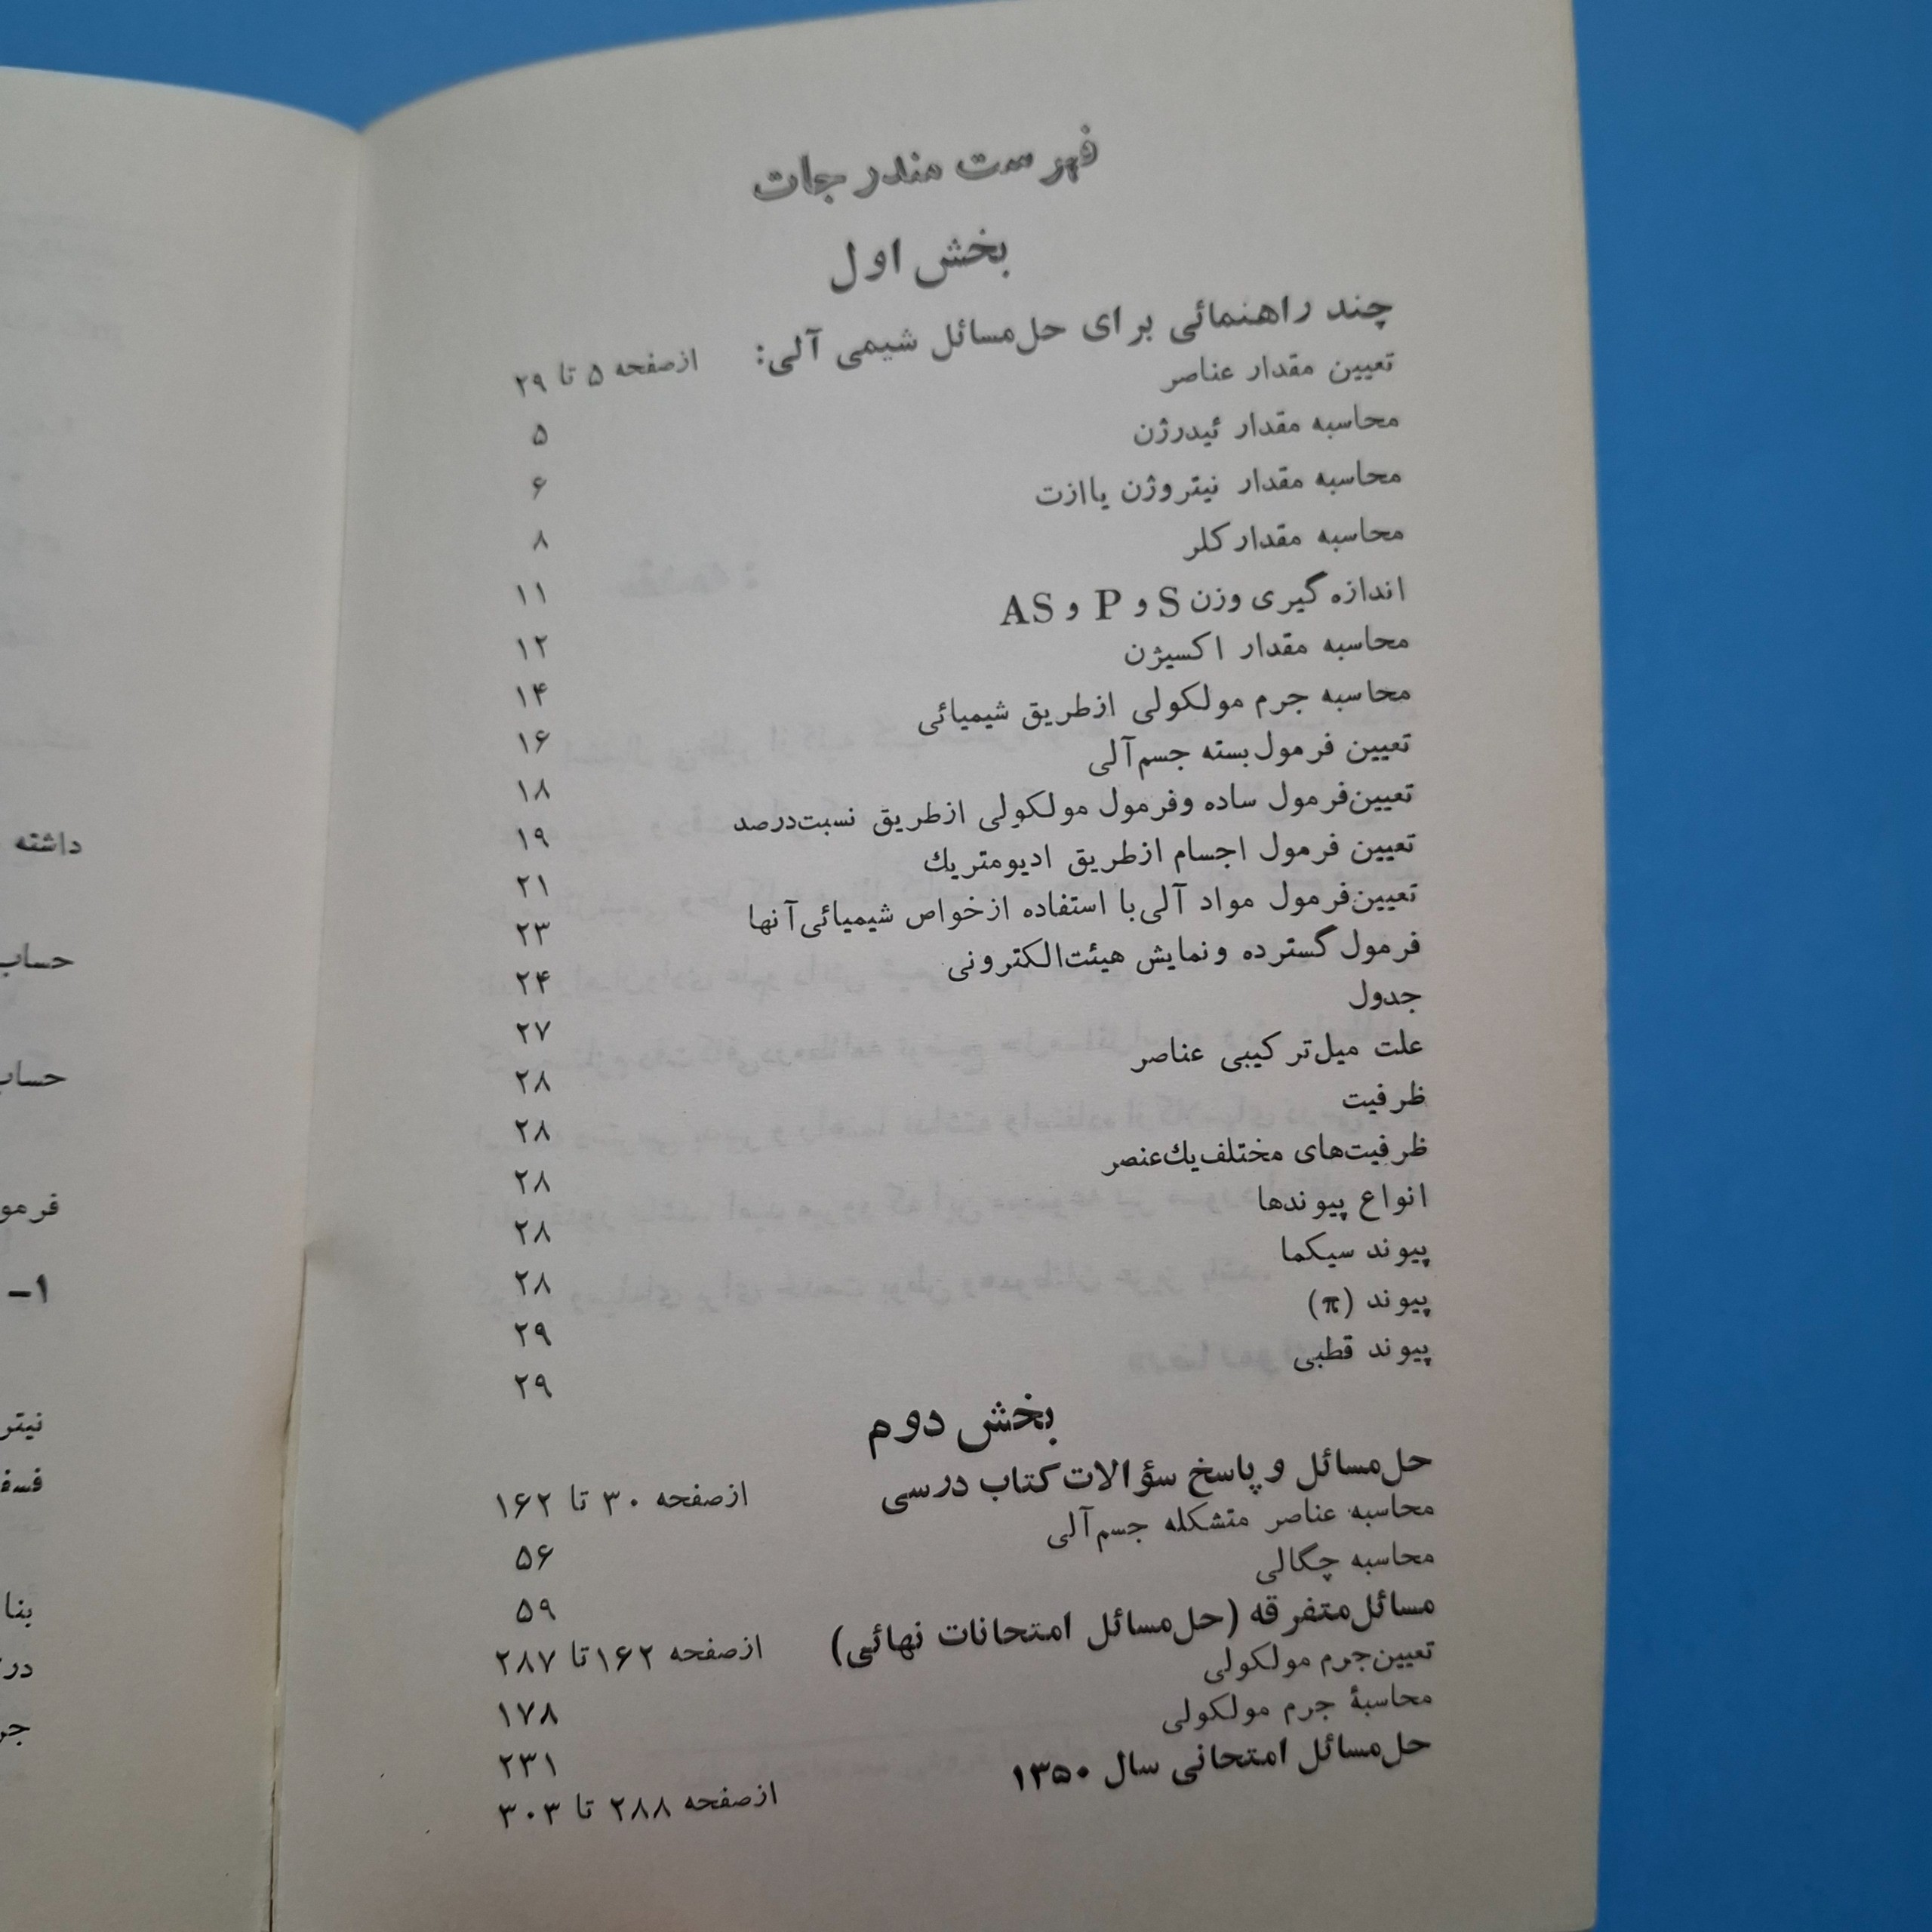 فهرست مندرجات
بخش اول
چند راهنمائی برای حل‌مسائل شیمی آلی: ازصفحه ۵ تا ۲۹
تعیین مقدار عناصر ۵
محاسبه مقدار ئیدرژن ۶
محاسبه مقدار نیتروژن یاازت ۸
محاسبه مقدار کلر ۱۱
اندازه گیری وزن S و P و AS ۱۲
محاسبه مقدار اکسیژن ۱۴
محاسبه جرم مولکولی ازطریق شیمیائی ۱۶
تعیین فرمول بسته جسم‌آلی ۱۸
تعیین‌فرمول ساده وفرمول مولکولی ازطریق نسبت‌درصد ۱۹
تعیین فرمول اجسام ازطریق ادیومتریك ۲۱
تعیین‌فرمول مواد آلی‌با استفاده ازخواص شیمیائی‌آنها ۲۳
فرمول گسترده ونمایش هیئت‌الکترونی ۲۴
جدول ۲۷
علت میل‌ترکیبی عناصر ۲۸
ظرفیت ۲۸
ظرفیت‌های مختلف‌یك‌عنصر ۲۸
انواع پیوندها ۲۸
پیوند سیکما ۲۸
پیوند (π) ۲۹
پیوند قطبی ۲۹
بخش دوم
حل‌مسائل و پاسخ سؤالات کتاب درسی ازصفحه ۳۰ تا ۱۶۲
محاسبه عناصر متشکله جسم‌آلی ۵۶
محاسبه چگالی ۵۹
مسائل‌متفرقه (حل‌مسائل امتحانات نهائی) ازصفحه ۱۶۲ تا ۲۸۷
تعیین‌جرم مولکولی ۱۷۸
محاسبهٔ جرم مولکولی ۲۳۱
حل‌مسائل امتحانی سال ۱۳۵۰ ازصفحه ۲۸۸ تا ۳۰۳
داشته
حساب
حساب
۱-
بنا